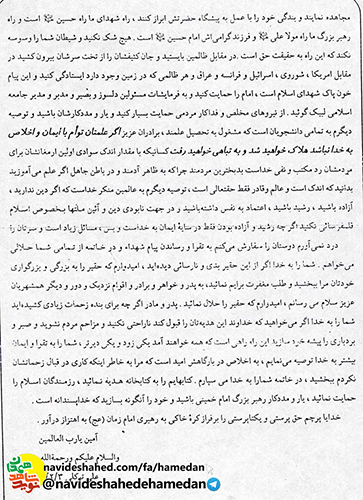 مجاهده نمایند و بندگی خود را با عمل به پیشگاه حضرتش ابراز کنند ، راه شهدای ما راه حسین است و راه
رهبر بزرگ ما راه مولا علی و فرزند گرامی‌اش امام حسین است. هیچ شک نکنید و شیطان شما را وسوسه
نکند که این راه به حقیقت حق است. در مقابل ظالمین بایستید و جان کثیفشان را از تخت سرشان بیرون کشید در
مقابل امریکا ، شوروی ، اسرائیل و فرانسه و عراق و هر ظالمی که در زمین وجود دارد ایستادگی کنید و این پیام
خون پاک شهدای اسلام است ، امام را حمایت کنید و به فرمایشات مسئولین دلسوز و بصیر و مدبر و مدیر جامعه
اسلامی لبیک گوئید. از نیروهای مخلص و فداکار مردمی حمایت بسیار کنید و یار و مددکارشان باشید و توصیه
دیگرم به تمامی دانشجویان است که مشغول به تحصیل علمند ، برادران عزیز اگر علمتان توأم با ایمان و اخلاص
به خدا نباشد هلاک خواهید شد و به تباهی خواهید رفت کسانیکه با مقدار اندک سوادی اولین ارمغانشان برای
مردمشان رد مکتب و نفی خداست بدبخترین مردمند چرا که به ظاهر آدمند و در باطن جاهل اگر علم می‌آموزید
بدانید که اندک است و عالم وقادر فقط حقتعالی است ، توصیه دیگرم به عالمین منکر خداست که اگر دین ندارید ،
آزاده باشید ، رشید باشید ، اعتماد به نفس داشته‌باشید و در جهت نابودی دین و آئین ملتها بخصوص اسلام
فلسفه سائی نکنید اگر چه رشید و آزاده بودن فقط در سایه ایمان به خداست و بس ، مسائل زیاد است و سرتان را
درد نمی‌آورم دوستان را سفارش می‌کنم به تقوا و رساندن پیام شهداء و در خاتمه از تمامی شما حلالی
می‌خواهم . شما را به خدا اگر از این حقیر بدی و نارسائی دیده‌اید ، امیدوارم که حقیر را به بزرگی و بزرگواری
خودتان مرا ببخشید و طلب مغفرت برایم نمائید ، به پدر و خواهر و برادر و اقوام نزدیک و دور و دیگر همشهریان
عزیز سلام می رسانم ، امیدوارم که حقیر را حلال نمائید . پدر و مادر اگر چه برای بنده زحمات زیادی کشیده‌اید
شما را به خدا اگر می‌خواهید که خداوند این هدیه‌تان را قبول کند ناراحتی نکنید و مزاحم مردم نشوید و صبر و
بردباری را پیشه خود سازید این راه راهی است که همه خواهند آمد یکی زود و یکی دیرتر ، شما را به تقوی و ایمان
بیشتر به خدا توصیه می‌نمایم ، به اخلاص در بارگاهش امید است که مرا به خاطر اینکه کاری در قبال زحماتشان
نکردم ببخشید ، در خاتمه شما را به خدا می سپارم . کتابهایم را به کتابخانه هدیه نمائید ، رزمندگان اسلام را
حمایت نمائید ، یار و مددکار رهبر بزرگ امام خمینی باشید و خود را آنگونه بسازید که خداپسندانه است .
خدایا پرچم حق پرستی و یکتاپرستی را برفراز کرهٔ خاکی به رهبری امام زمان (عج) به اهتزاز درآور .
آمین یارب العالمین
والسلام علیکم ورحمةالله
علی توکلی
navideshahed.com/fa/hamedan
@navideshahedehamedan